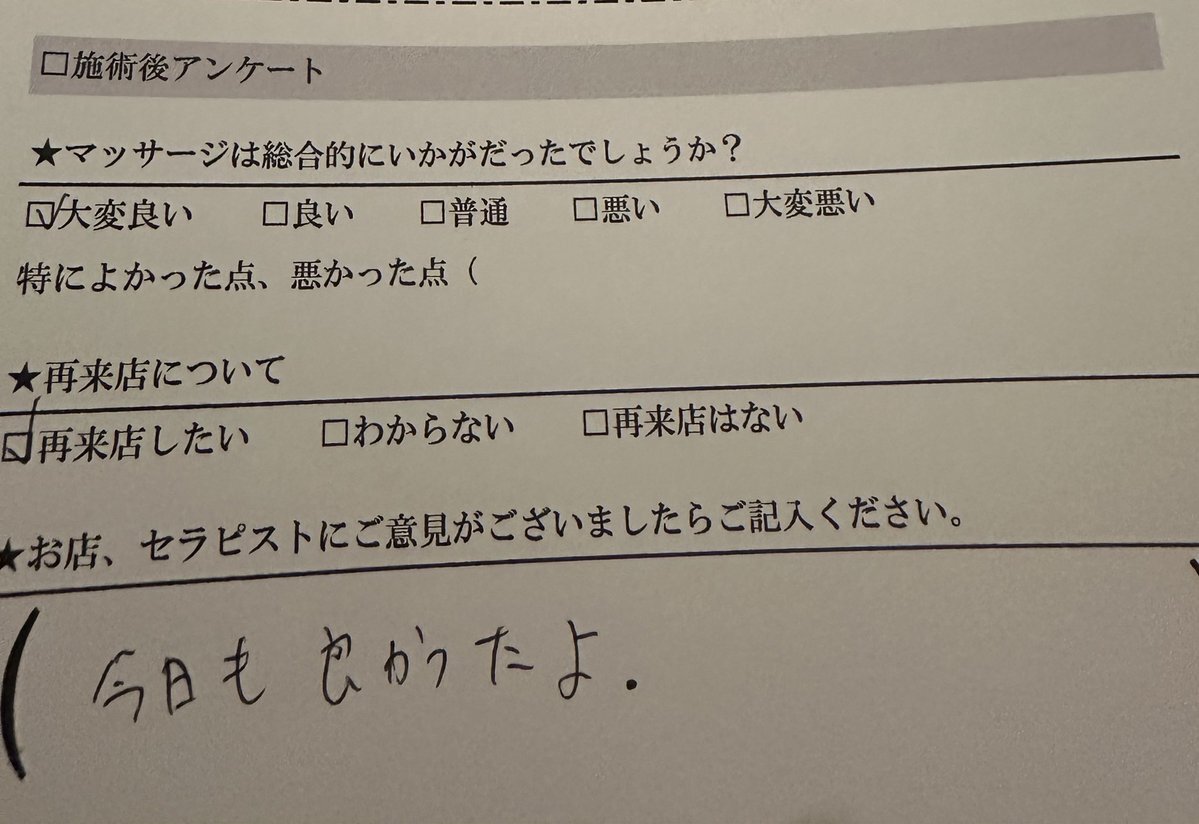 □施術後アンケート
★マッサージは総合的にいかがだったでしょうか?
☑大変良い □良い □普通 □悪い □大変悪い
特によかった点、悪かった点(
★再来店について
☑再来店したい □わからない □再来店はない
★お店、セラピストにご意見がございましたらご記入ください。
(今日も良かったよ.